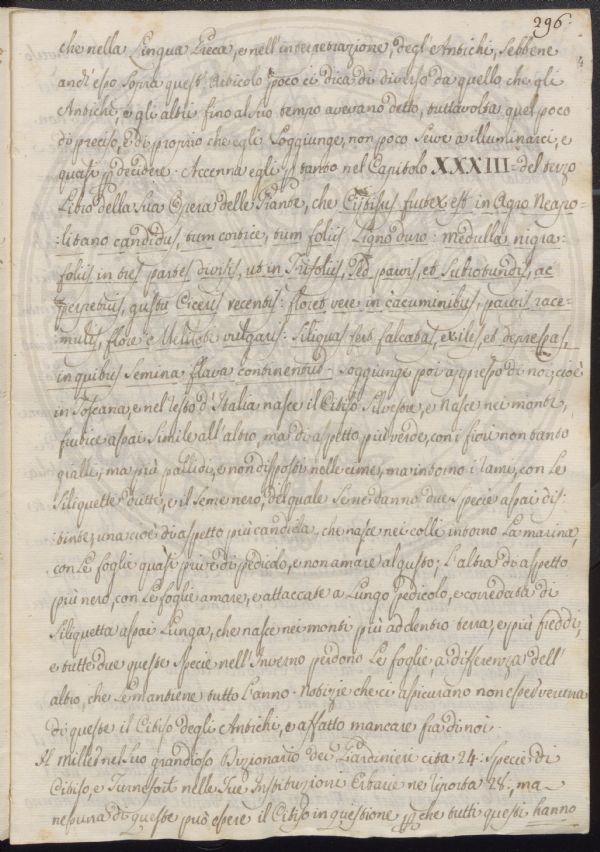 296.
che nella Lingua Greca, e nell'interpretazione, degl'Antichi, sebbene
anch'esso sopra quest'Articolo poco ci dica di diverso da quello che gli
Antichi, e gli altri fino al suo tempo avevano detto, tuttavolta quel poco
di preciso, e di proprio che egli soggiunge, non poco serve a illuminarci, e
quasi p decidere. Accenna egli p tanto nel Capitolo XXXIII = del terzo
Libro della sua Opera delle Piante, che Cytisus frutex est in Agro Neapo=
=litano candidus, tum cortice, tum foliis. Ligno duro: medulla nigra:
foliis in tres partes divisis, ut in Trifoliis, sed parvis, et subrotundis, ac
perpetuis, gustu Ciceris recentis: floret vere in cacuminibus, parvis race=
=mulis, flore e Meliloti vulgaris: siliquas fert falcatas, exiles, et depressas,
in quibus semina flava continentur. Soggiunge poi appresso di noi, cioè
in Toscana, e nel resto d'Italia nasce il Citiso silvestre, e nasce nei monti,
frutice assai simile all'altro, ma di aspetto più verde, con i fiori non tanto
gialli, ma più pallidi, e non disposti nelle cime, ma intorno i rami, con le
siliquette dritte, e il seme nero, del quale se ne danno due specie assai dis=
=tinte; una cioè di aspetto più candida, che nasce nei colli intorno la marina,
con le foglie quasi prive di pedicolo, e non amare al gusto; l'altra di aspetto
più nero, con le foglie amare, e attaccate a lungo pedicolo, e corredata di
siliquetta assai lunga, che nasce nei monti più addentro terra, e più freddi,
e tutte due queste specie nell'Inverno perdono le foglie, a differenza dell'
altro, che se mantiene tutto l'anno. Notizie che ci assicurano non esser veruna
di queste il Citiso degli Antichi, e affatto mancare fra di noi.
Il Miller nel suo grandioso Dizionario dei Giardinieri cita 24: specie di
Citiso, e Turnefort nelle sue Instituzioni Erbarie ne riporta 28:, ma
nessuna di queste può essere il Citiso in questione, che tutti questi hanno